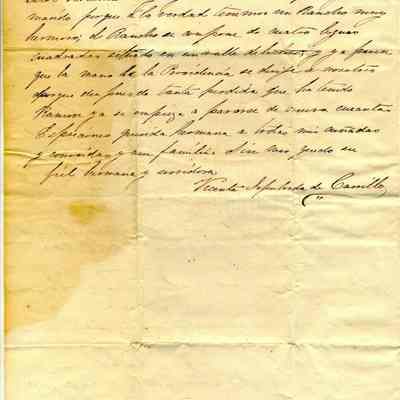 mando porque a la verdad tenemos un Rancho muy
hermoso; el Rancho se compone de cuatro leguas
cuadradas situado en un valle y ya parece
que la mano de la Providencia se dirije a nosotros
porque despues de tanta perdida que ha tenido
Ramon ya se empieza a pararse de nueva cuenta.
Esperamos querida hermana a todas mis cuñadas
y comadres y aun familia. Sin mas quedo su
fiel hermana y servidora
Vicenta Sepulveda de Carrillo